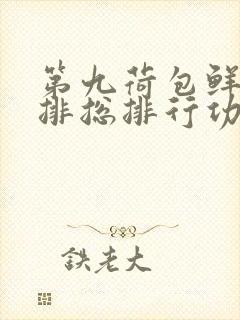 第九荷包鲜
排总排行功
铁老大